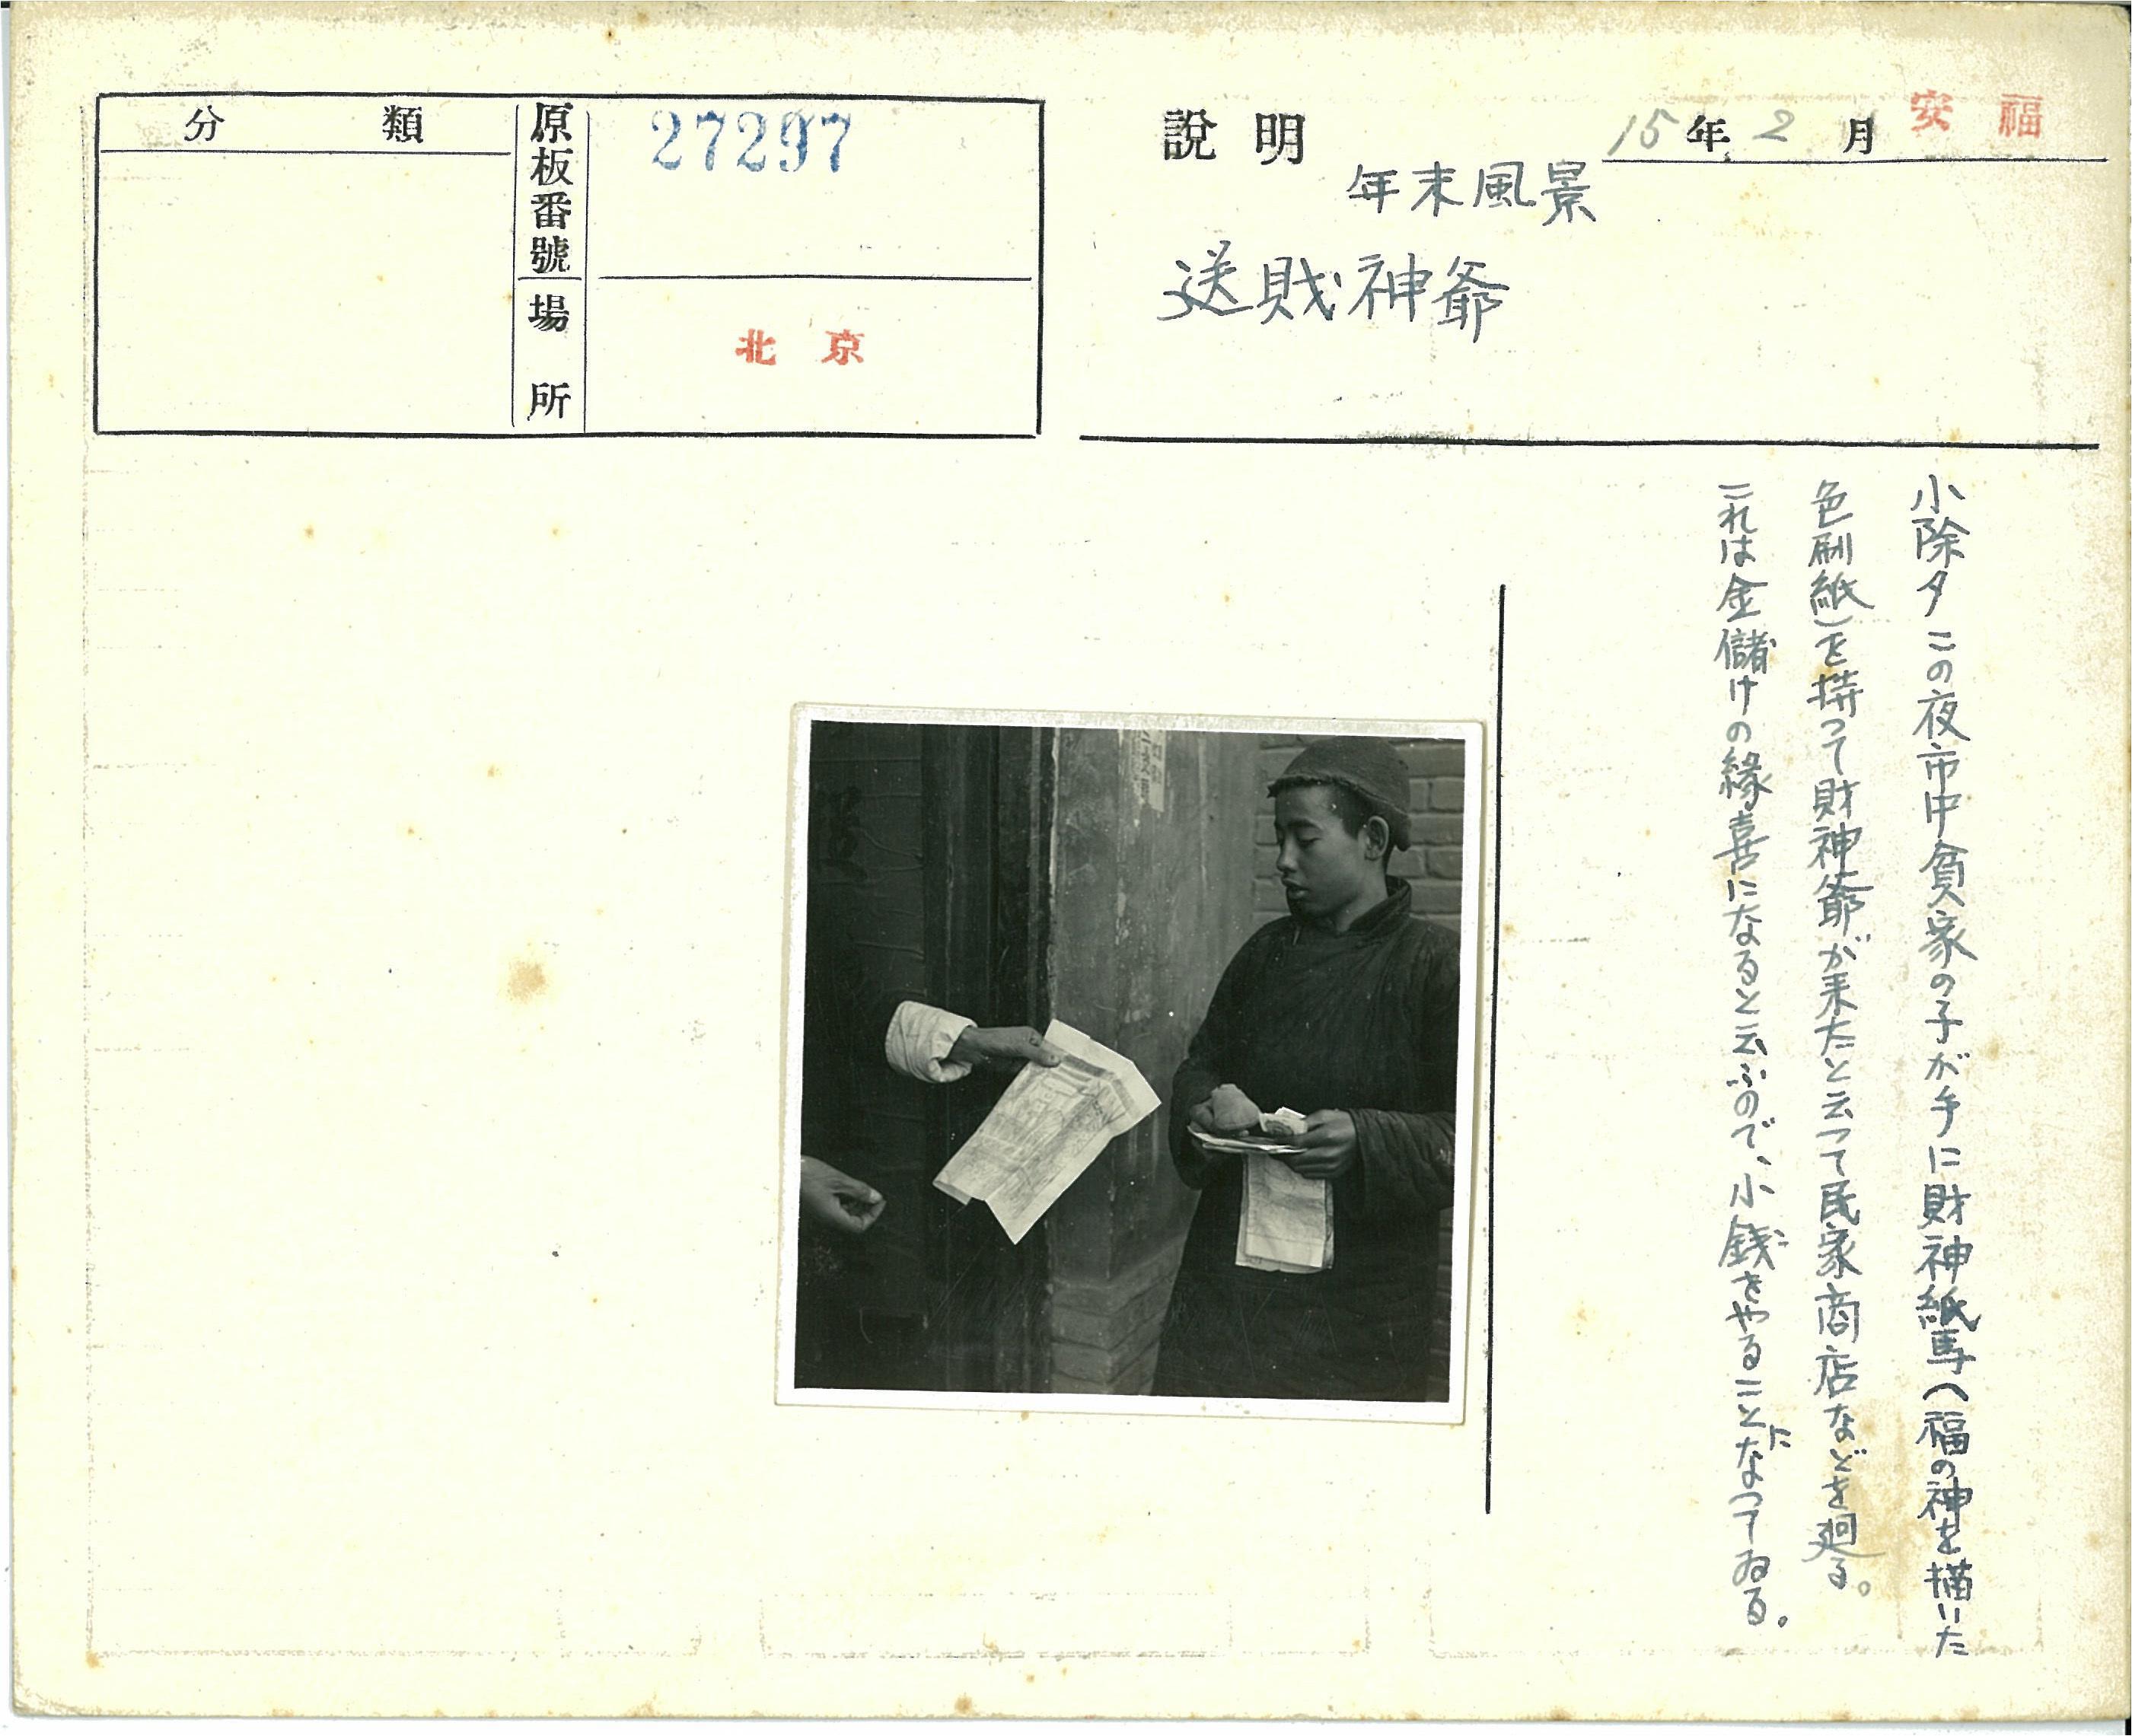 分類
原板番號
27297
場所
北京
說明
15年2月
安福
年末風景
送財神爺
小除夕この夜市中貧家の子が手に財神紙馬(福の神を描いた
色刷紙)を持って財神爺が来たと云って民家商店などを廻る。
これは金儲けの縁喜になると云ふので、小銭をやることになってゐる。